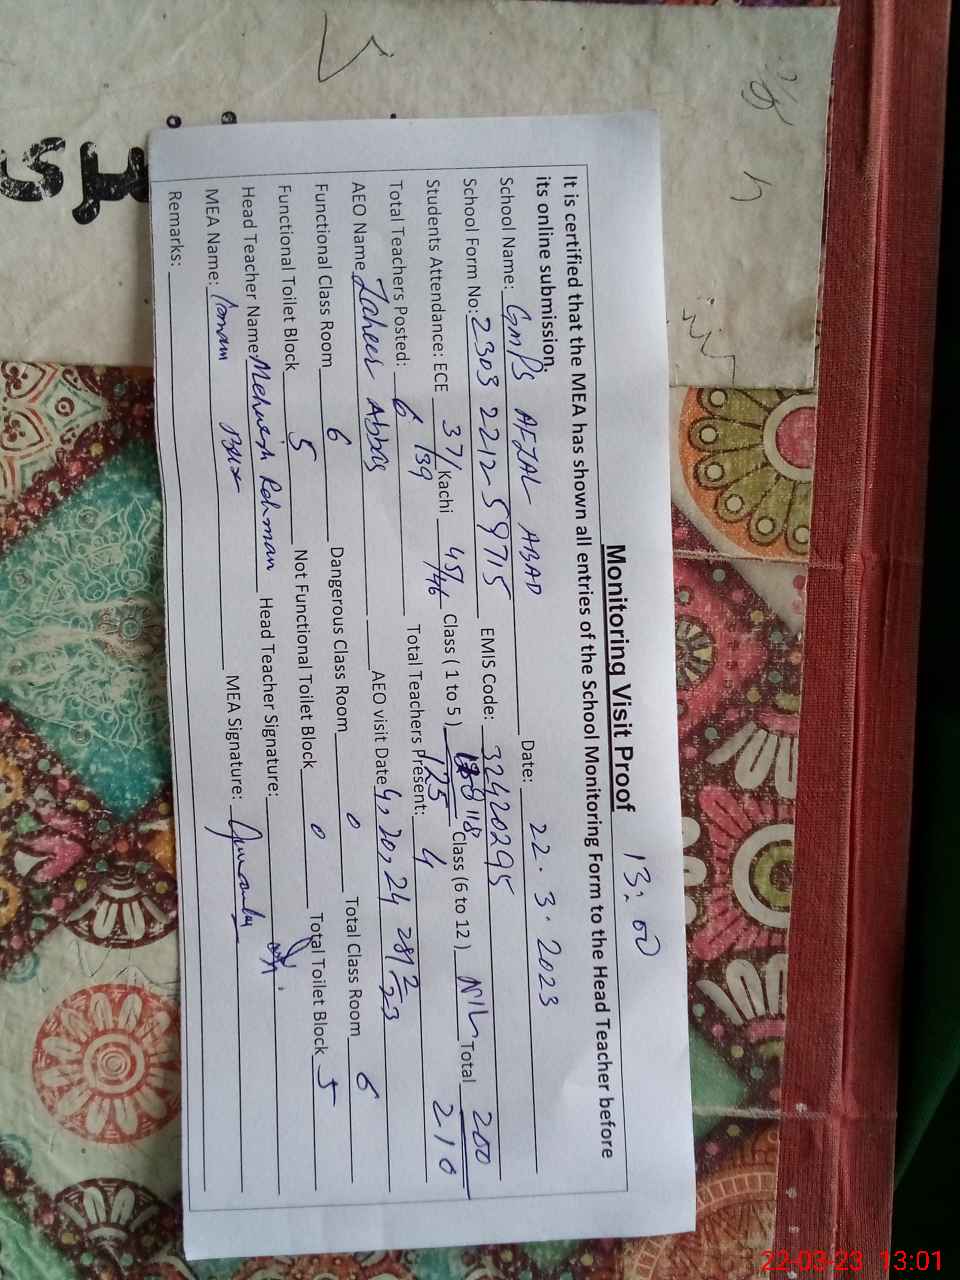 Monitoring Visit Proof 13:00
It is certified that the MEA has shown all entries of the School Monitoring Form to the Head Teacher before
its online submission.
School Name: GMPS AFZAL ABAD Date: 22.3.2023
School Form No: 2303 2212 59715 EMIS Code: 32420295
Students Attendance: ECE 37/39 Kachi 45/46 Class ( 1 to 5 ) 118/125 Class (6 to 12 ) NIL Total 200/210
Total Teachers Posted: 6 Total Teachers Present: 4
AEO Name Zaheer Abbas AEO visit Date 4, 20, 24 28/2/23
Functional Class Room 6 Dangerous Class Room 0 Total Class Room 6
Functional Toilet Block 5 Not Functional Toilet Block 0 Total Toilet Block 5
Head Teacher Name: Mehwish Rehman Head Teacher Signature:
MEA Name: Bux MEA Signature:
Remarks:
22-03-23 13:01